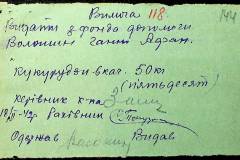 Вимога 118
144
Видати з фонда допомоги
Волошин Ганні Адам.
Кукурудзи в кач. 50 кг
(пятьдесят)
Керівник к-па
Рахівник
Одержав Видав